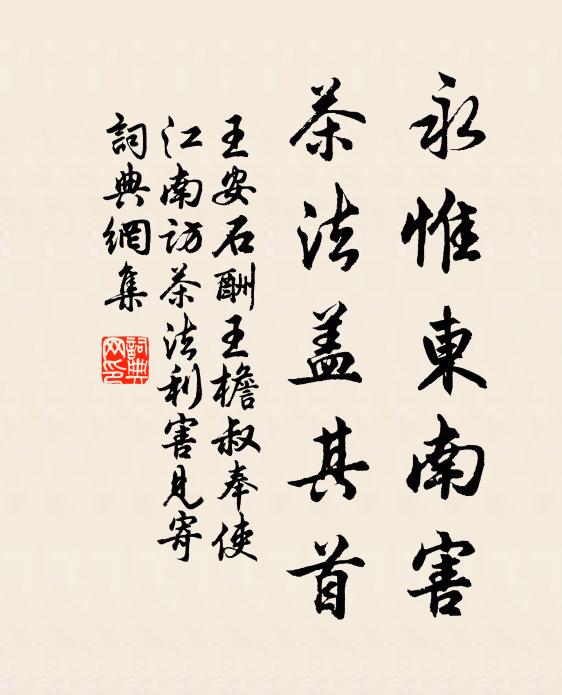 永惟東南害
茶法盖其首
王安石酬王檐叔奉使
江南访茶法利害見寄
詞典網集
詞典
网印